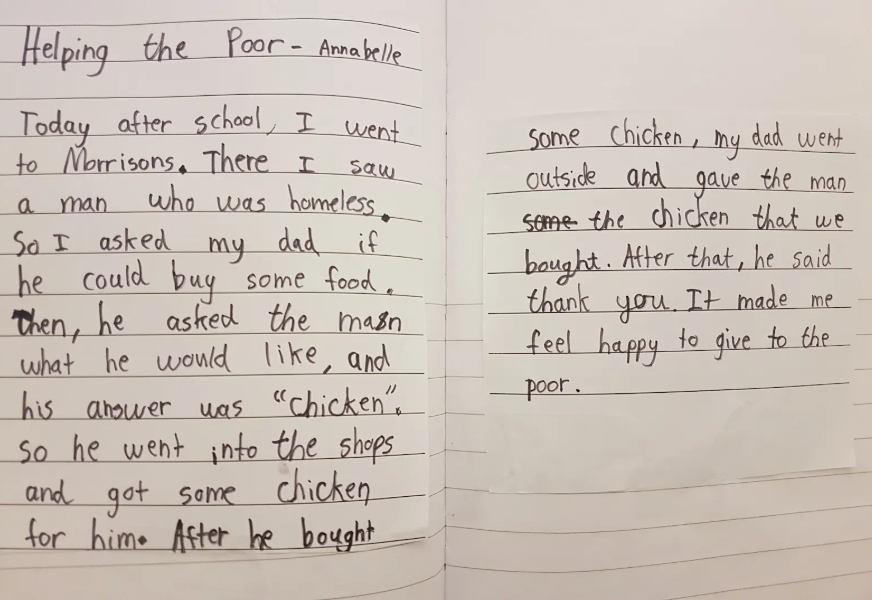 Helping the Poor - Annabelle
Today after school, I went
to Morrisons. There I saw
a man who was homeless.
So I asked my dad if
he could buy some food.
Then, he asked the man
what he would like, and
his answer was “chicken”.
so he went into the shops
and got some chicken
for him. After he bought
some chicken, my dad went
outside and gave the man
some the chicken that we
bought. After that, he said
thank you. It made me
feel happy to give to the
poor.